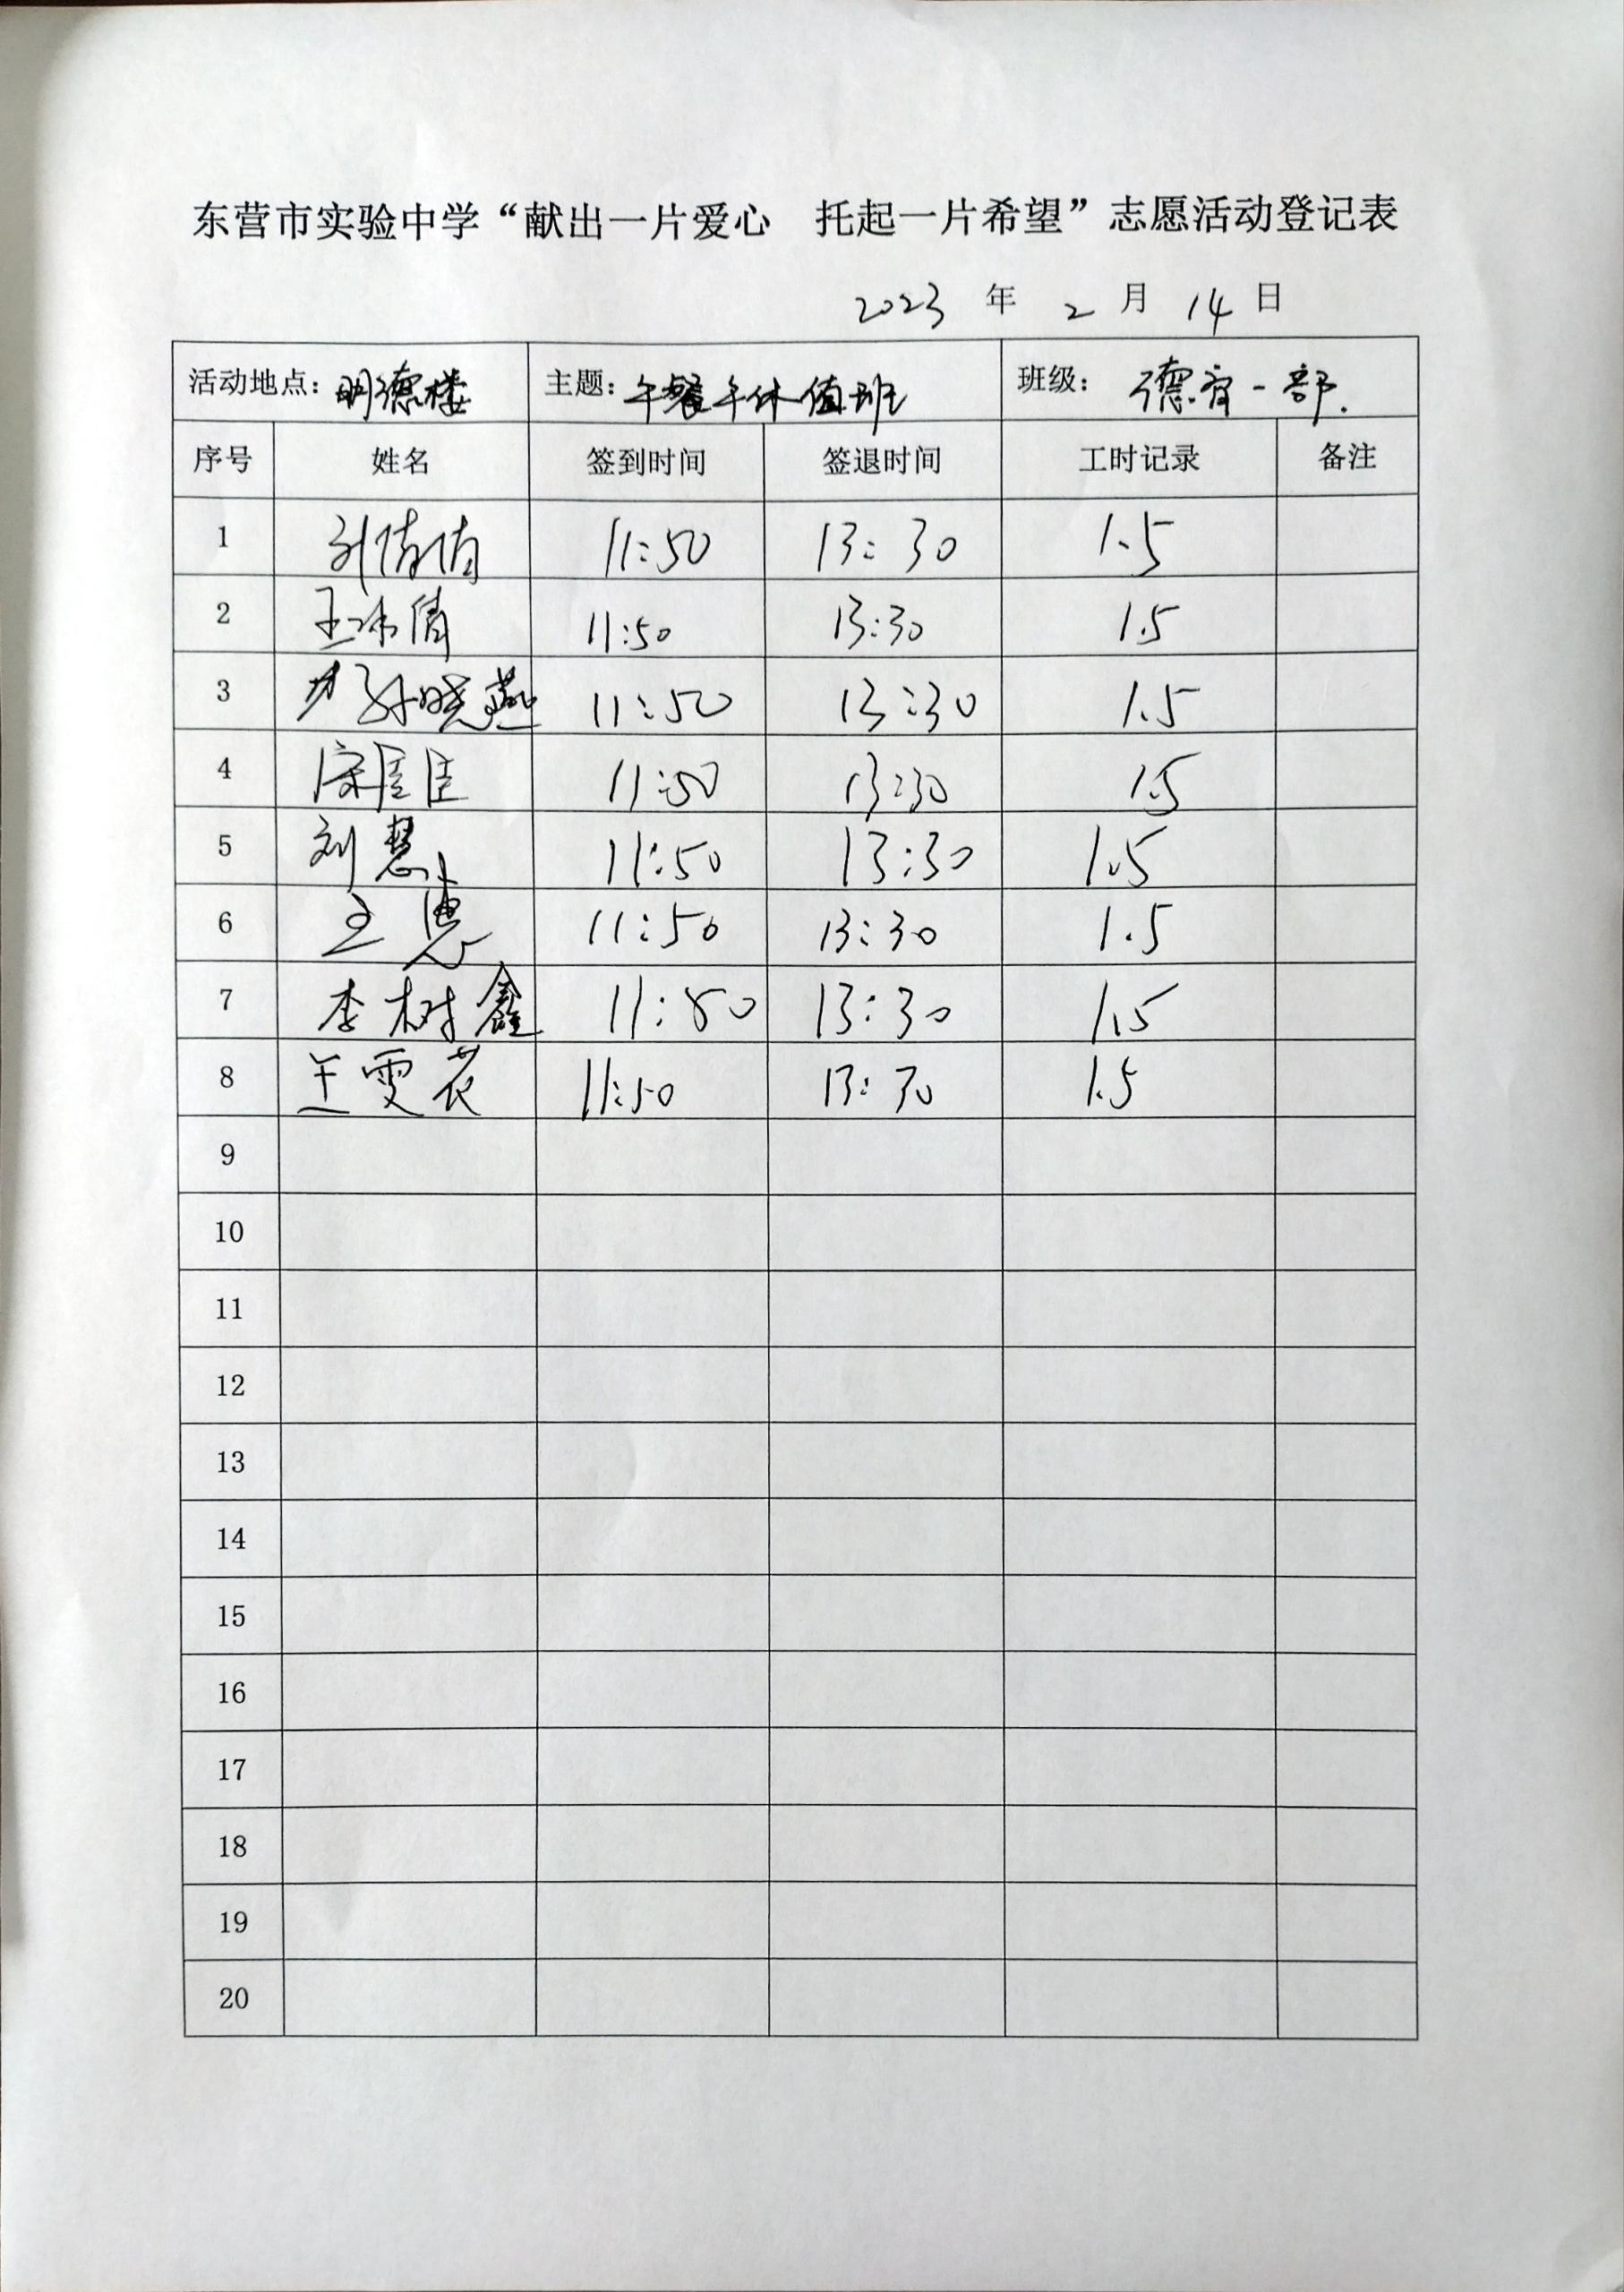 东营市实验中学“献出一片爱心 托起一片希望”志愿活动登记表
2023 年 2 月 14 日
活动地点：明德楼 主题：午餐午休值班 班级：德育一部.
序号 姓名 签到时间 签退时间 工时记录 备注
1 刘倩倩 11:50 13:30 1.5
2 王冰倩 11:50 13:30 1.5
3 孙晓燕 11:50 13:30 1.5
4 11:50 13:30 1.5
5 刘慧 11:50 13:30 1.5
6 王惠 11:50 13:30 1.5
7 李树鑫 11:50 13:30 1.5
8 王雯花 11:50 13:30 1.5
9
10
11
12
13
14
15
16
17
18
19
20